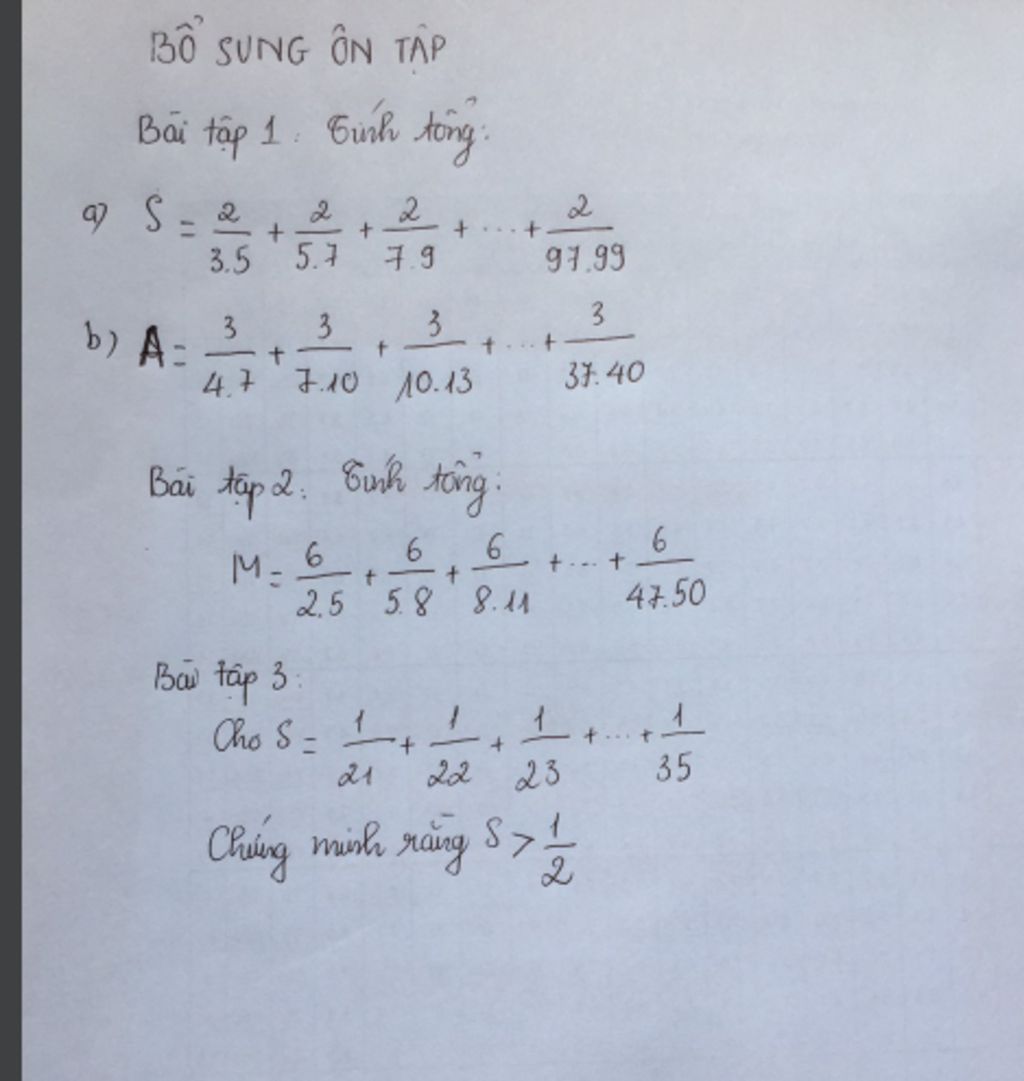 BỔ SUNG ÔN TẬP
Bài tập 1: Tính tổng:
a) S = 2/3.5 + 2/5.7 + 2/7.9 + ... + 2/97.99
b) A = 3/4.7 + 3/7.10 + 3/10.13 + ... + 3/37.40
Bài tập 2: Tính tổng:
M = 6/2.5 + 6/5.8 + 6/8.11 + ... + 6/47.50
Bài tập 3:
Cho S = 1/21 + 1/22 + 1/23 + ... + 1/35
Chứng minh rằng S > 1/2